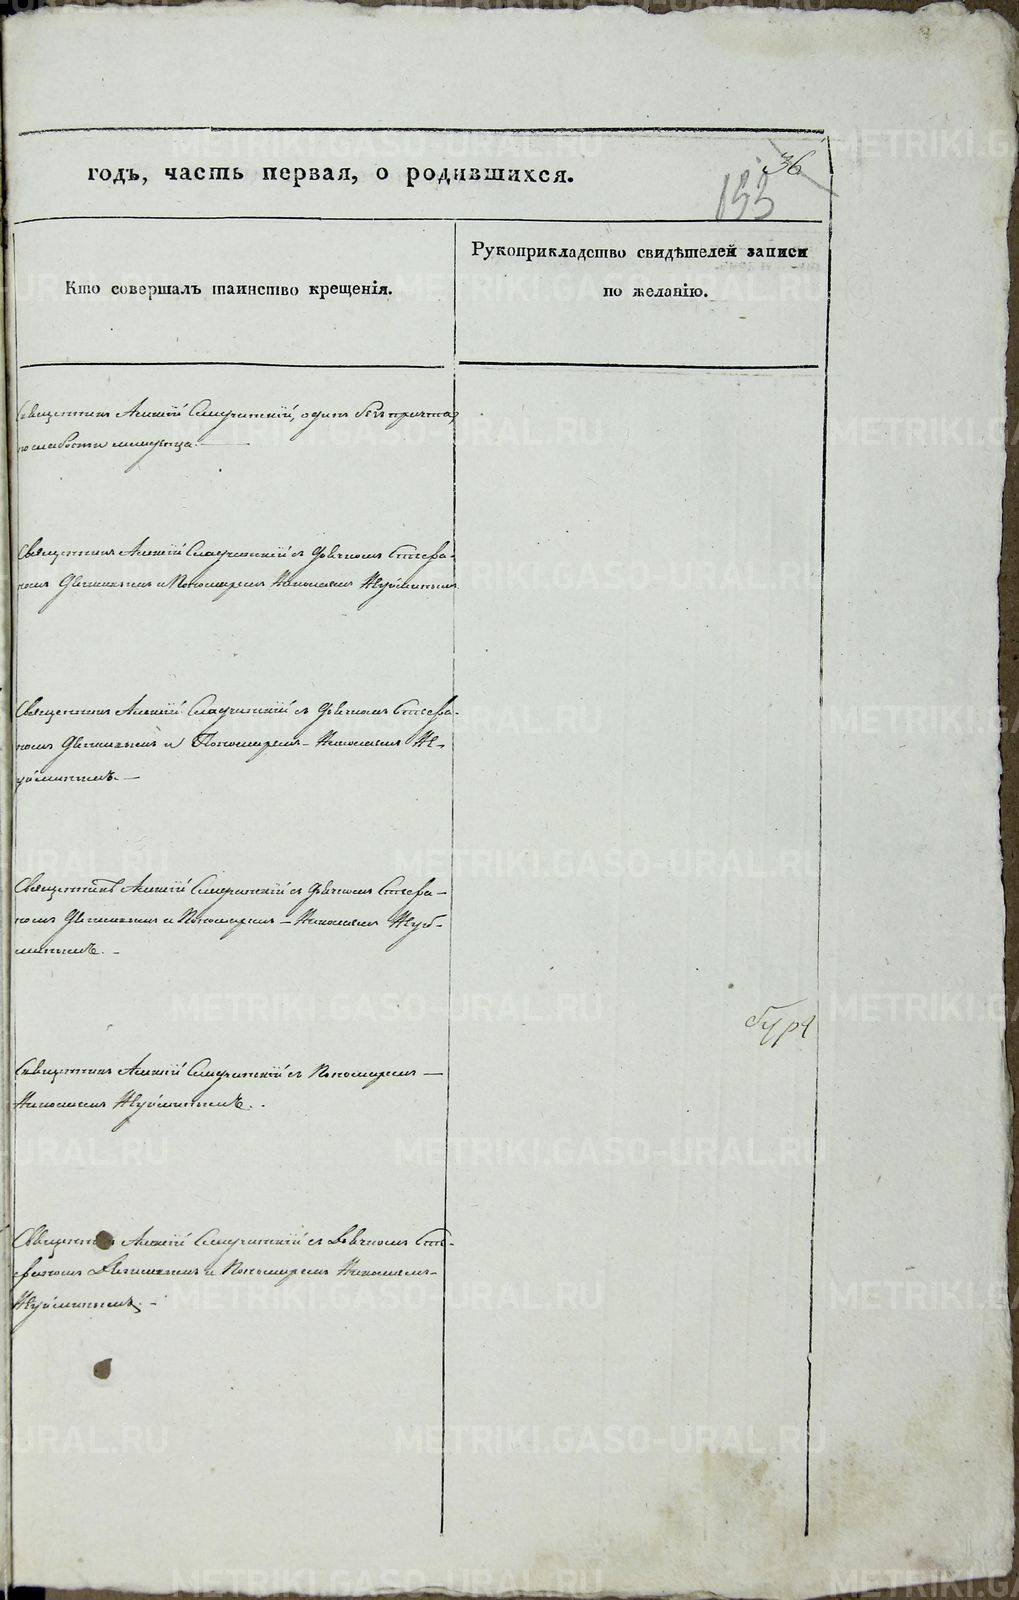 годъ, часть первая, о родившихся.
36
133
Кто совершалъ таинство крещенія.
Рукоприкладство свидѣтелей записи
по желанію.
Священникъ Алексій, одинъ безъ причта,
по слабости младенца.
Священникъ Алексій съ Дьячкомъ Стефа-
номъ и Пономаремъ Николаемъ Нуйминымъ
Священникъ Алексій съ Дьячкомъ Стефа-
номъ и Пономаремъ Николаемъ Ну-
йминымъ.
Священникъ Алексій съ Дьячкомъ Стефа-
номъ и Пономаремъ Николаемъ Нуй-
минымъ.
Священникъ Алексій съ Пономаремъ
Николаемъ Нуйминымъ.
Священникъ Алексій съ Дьячкомъ Сте-
фаномъ и Пономаремъ Николаемъ
Нуйминымъ.
METRIKI.GASO-URAL.RU